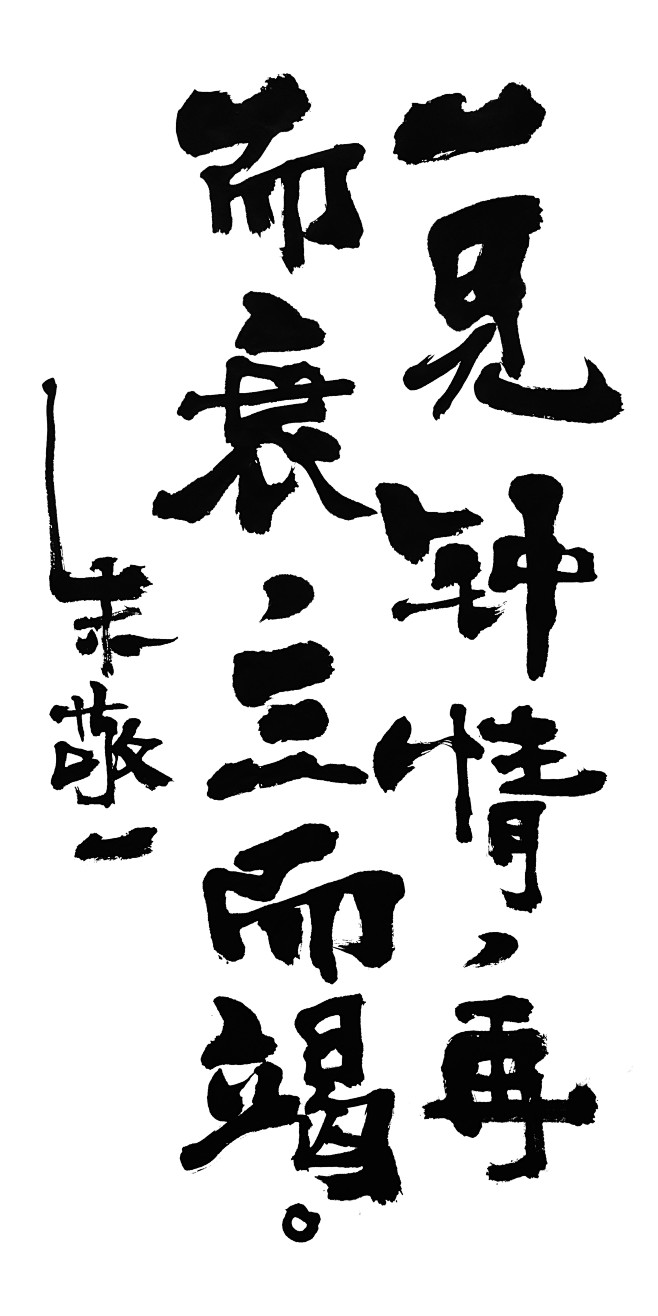 一见钟情，再
而衰，三而竭。
朱敬一